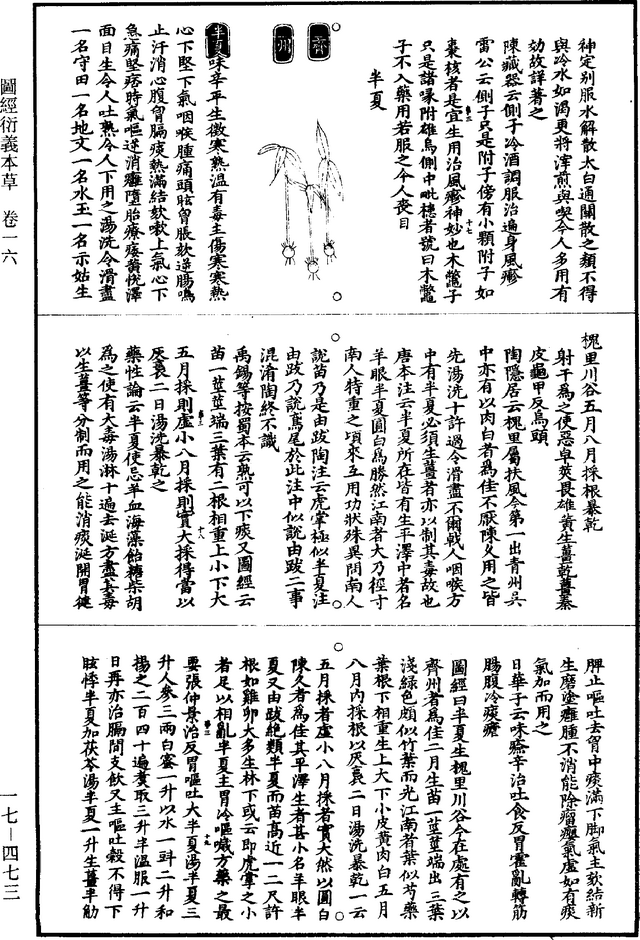 圖經衍義本草　卷一六
神定別服水解散太白通關散之類不得
與冷水如渴更將滓煎與喫今人多用有
効故詳著之
陳藏器云側子冷酒調服治遍身風瘮
雷公云側子只是附子傍有小顆附子如
棗核者是宜生用治風瘮神妙也木鼈子
只是諸喙附雄烏側中毗槵者號曰木鼈
子不入藥用若服之令人喪目
半夏
齊
州
半夏味辛平生微寒熟溫有毒主傷寒寒熱
心下堅下氣咽喉腫痛頭眩胷脹欬逆腸鳴
止汗消心腹胷膈痰熱滿結欬嗽上氣心下
急痛堅痞時氣嘔逆消癰腫墮胎療痿黃悅澤
面目生令人吐熟令人下用之湯洗令滑盡
一名守田一名地文一名水玉一名示姑生
槐里川谷五月八月採根暴乾
射干爲之使惡皁莢畏雄黃生薑乾薑秦
皮龜甲反烏頭
陶隱居云槐里屬扶風今第一出青州吳
中亦有以肉白者爲佳不厭陳久用之皆
先湯洗十許過令滑盡不爾戟人咽喉方
中有半夏必須生薑者亦以制其毒故也
唐本注云半夏所在皆有生平澤中者名
羊眼半夏圓白爲勝然江南者大乃徑寸
南人特重之頃來互用功狀殊異問南人
說苗乃是由跋陶注云虎掌極似半夏注
由跋乃說鳶尾於此注中似說由跋二事
混淆陶終不識
禹錫等按蜀本云熟可以下痰又圖經云
苗一莖莖端三葉有二根相重上小下大
五月採則虛小八月採則實大採得當以
灰裛二日湯洗暴乾之
藥性論云半夏使忌羊血海藻飴糖柴胡
爲之使有大毒湯淋十遍去涎方盡其毒
以生薑等分制而用之能消痰涎開胃健
脾止嘔吐去胷中痰滿下肺氣主欬結新
生摩塗癰腫不消能除瘤癭氣虛如有痰
氣加而用之
日華子云味瘮辛治吐食反胃霍亂轉筋
腸腹冷痰瘧
圖經曰半夏生槐里川谷今在處有之以
齊州者爲佳二月生苗一莖莖端出三葉
淺綠色頗似竹葉而光江南者葉似芍藥
葉根下相重生上大下小皮黃肉白五月
八月內採根以灰裛二日湯洗暴乾一云
五月採者虛小八月採者實大然以圓白
陳久者爲佳其平澤生者甚小名羊眼半
夏又由跋絕類半夏而苗高近一二尺許
根如雞卵大多生林下或云即虎掌之小
者足以相亂半夏主胃冷嘔噦方藥之最
要張仲景治反胃嘔吐大半夏湯半夏三
升人參三兩白蜜一升以水一㪷二升和
揚之二百四十遍煑取三升半溫服一升
日再亦治膈間支飲又主嘔吐穀不得下
眩悸半夏加茯苓湯半夏一升生薑半觔
一七—四七三